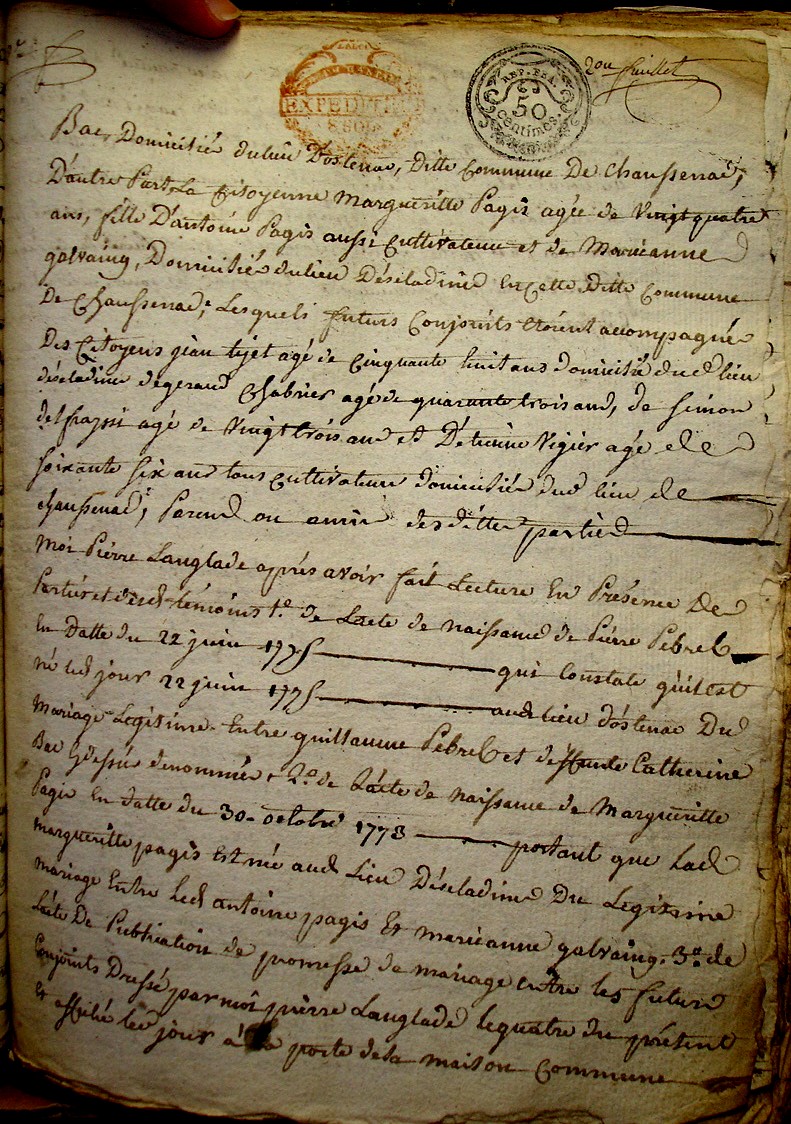 EXPEDITION
REP. FRA.
50
centimes.
Bac, Domicilié du lieu D'ostenac, Ditte Commune De Chaussenac,
D'autre Part, La Citoyenne Margueritte Pagis agée de Vingt quatre
ans, fille D'antoine Pagis aussi Cultivateur et de Marieanne
galvaing, Domiciliée du lieu Déseladine En Cette Ditte Commune
De Chaussenac; Lesquels futurs Conjoints étoient accompagnés
Des Citoyens jean tijet agé de Cinquante huit ans domicilié dud lieu
déseladine de geraud Chabrier agé de quarante trois ans, de Simon
delfraissi agé de Vingt trois ans et D'étienne Vigier agé de
soixante six ans tous Cultivateurs domiciliés dud lieu de
chaussenac; Parens ou amis des dittes parties
Moi Pierre Langlade après avoir fait Lecture En Présence Des
Parties et desd témoins 1.º de L'acte de naissance de Pierre Pebrel
En Datte du 22 juin 1775 qui Constate qu'il est
né led jour 22 juin 1775 aud lieu d'ostenac Du
Mariage Legitime Entre guillaume Pebrel et de Catherine
Bac Ci dessus denommés, 2.º de L'acte de naissance de Margueritte
Pagis En datte du 30 octobre 1773 portant que Lad
margueritte pagis est née aud Lieu Déseladine Du Legitime
mariage Entre Led antoine pagis Et marieanne galvaing. 3.º de
L'acte De Publication de promesse de mariage entre les futurs
Conjoints Dressé par moi pierre Langlade le quatre du présent
Et affiché led jour à la porte de la maison Commune